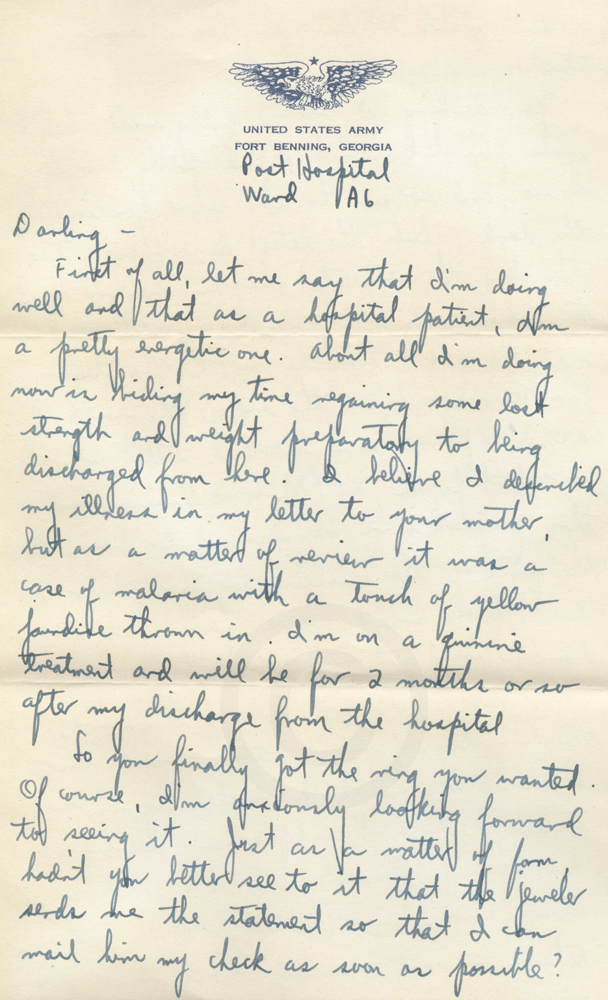 UNITED STATES ARMY
FORT BENNING, GEORGIA
Post Hospital
Ward A6
Darling –
First of all, let me say that I'm doing
well and that as a hospital patient, I'm
a pretty energetic one. About all I'm doing
now is biding my time regaining some lost
strength and weight preparatory to being
discharged from here. I believe I described
my illness in my letter to your mother,
but as a matter of review it was a
case of malaria with a touch of yellow
jaundise thrown in. I'm on a quinine
treatment and will be for 2 months or so
after my discharge from the hospital
So you finally got the ring you wanted.
Of course, I'm anxiously looking forward
to seeing it. Just as a matter of form,
hadn't you better see to it that the jeweler
sends me the statement so that I can
mail him my check as soon as possible?